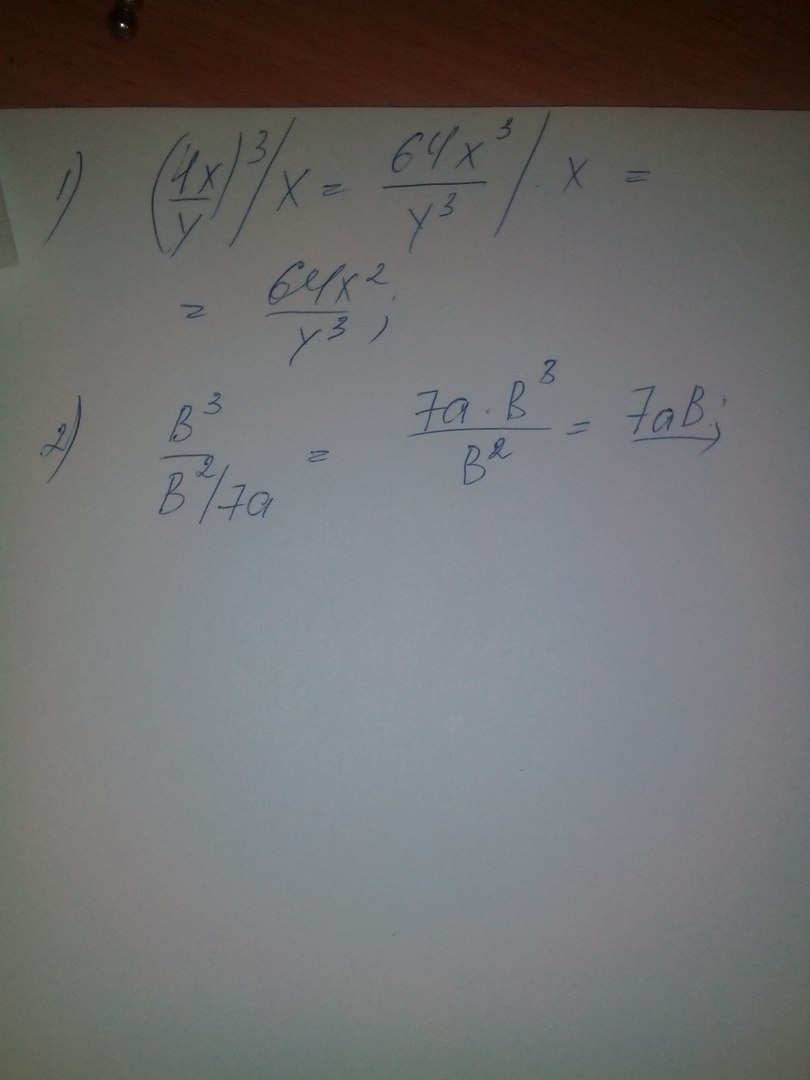 1) (4x/y)^3 / x = 64x^3/y^3 / x =
= 64x^2/y^3;
2) B^3/(B^2/7a) = 7a · B^3/B^2 = 7aB;